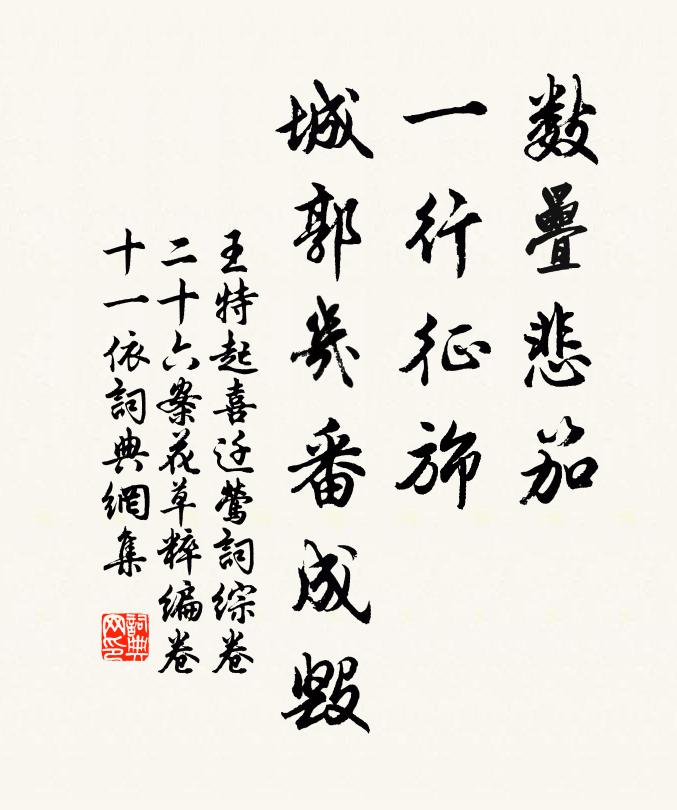 数疊悲笳
一行征旆
城郭幾番成毀
王特起喜迁鶯詞综卷
二十六案花草粹编卷
十一依詞典網集
詞典
网印